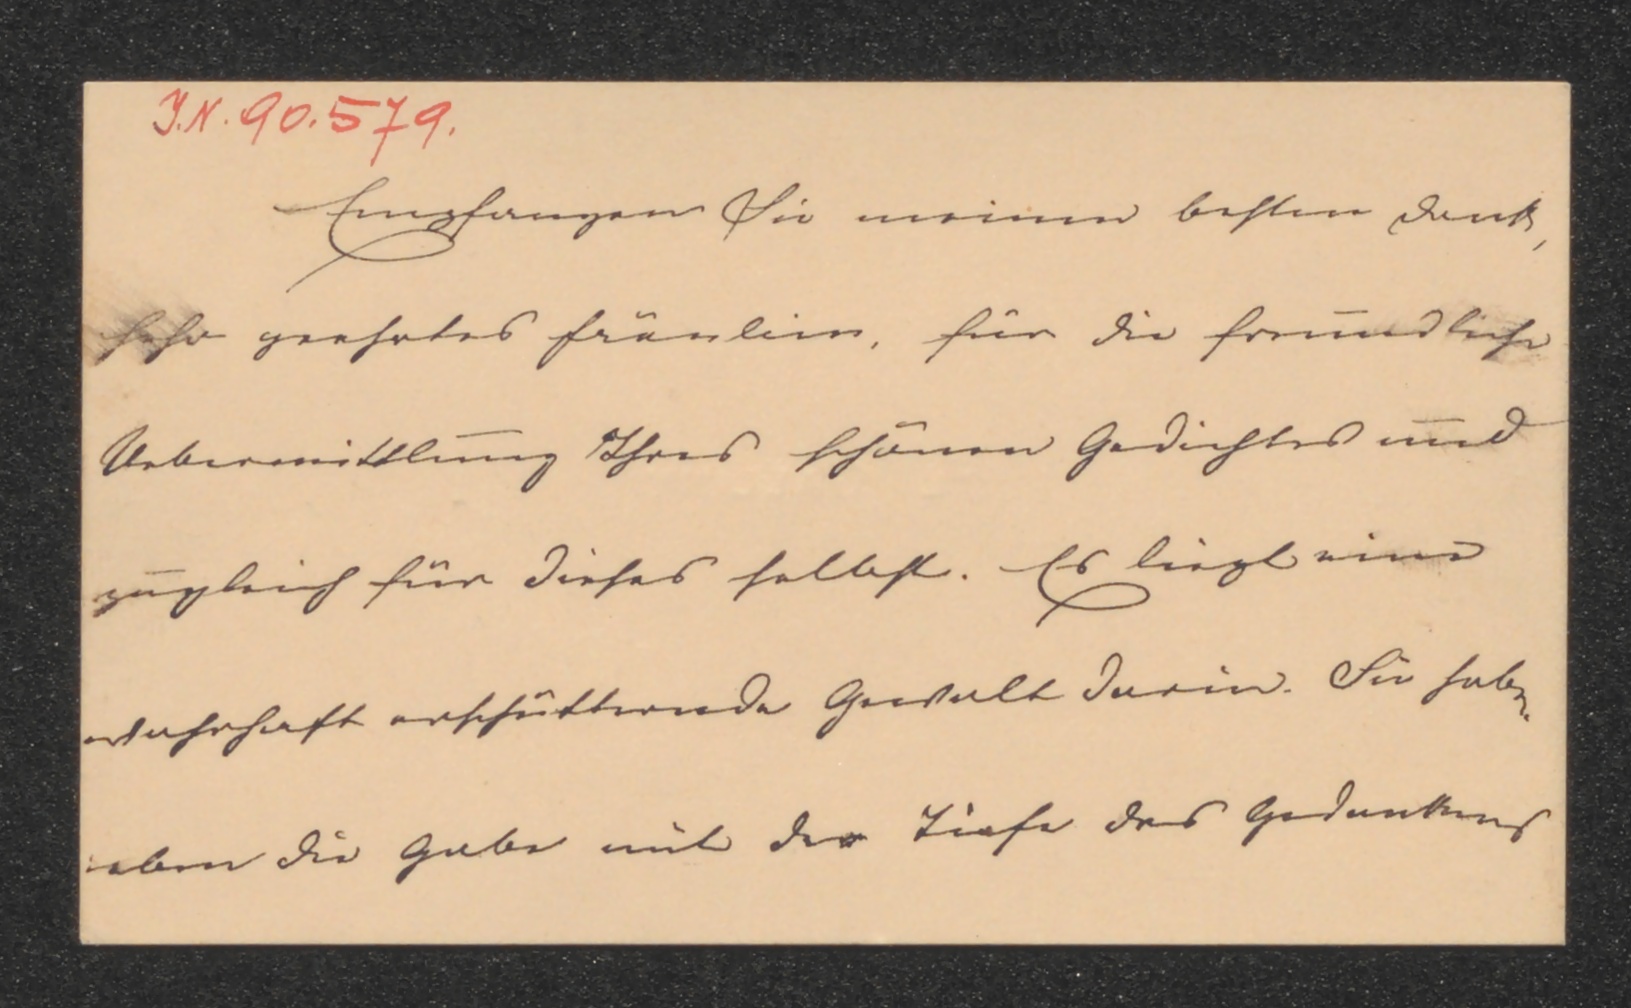 J.N. 90.579.
Empfangen Sie meinen besten Dank,
sehr geehrtes Fräulein, für die freundliche
Uebermittlung Ihres schönen Gedichtes und
zugleich für dieses selbst. Es liegt eine
wahrhaft erschütternde Gewalt darin. Sie haben
eben die Gabe mit der Tiefe des Gedankens